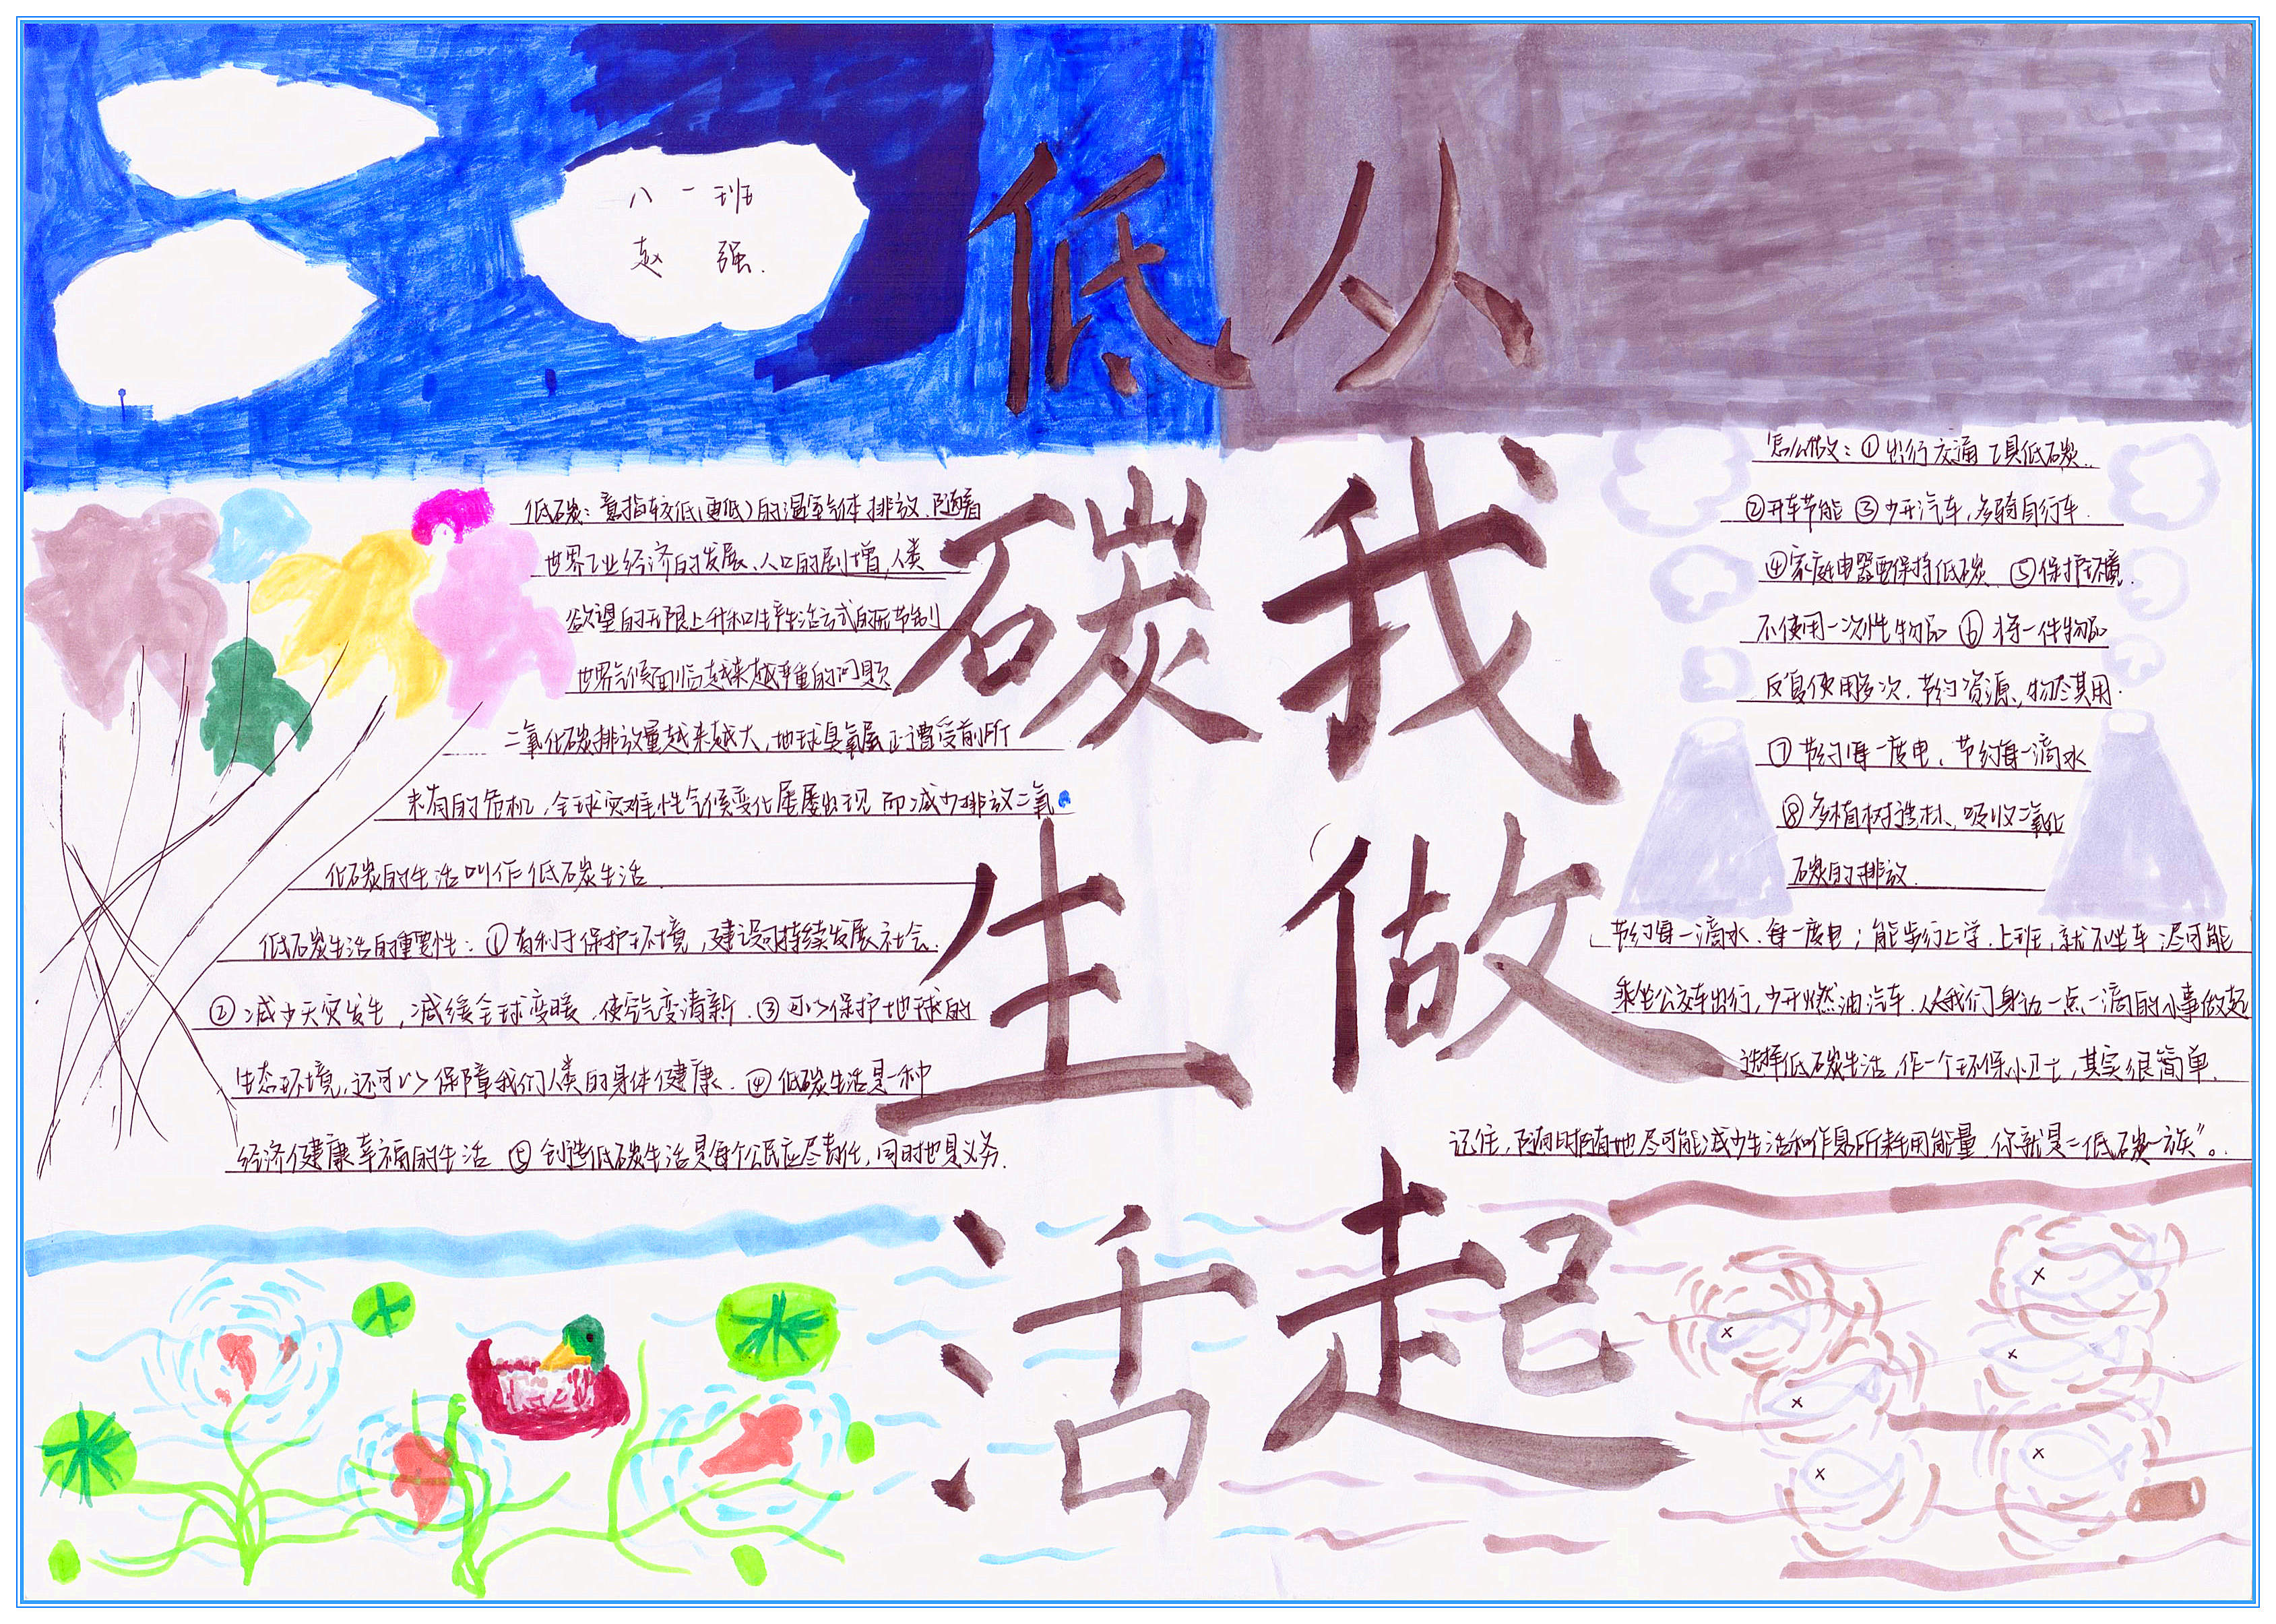 八一班
赵 强.
低碳生活
从我做起
低碳：意指较低(更低)的温室气体排放.随着
世界工业经济的发展、人口的剧增,人类
欲望的无限上升和生产生活方式的无节制
世界气候面临越来越严重的问题
二氧化碳排放量越来越大,地球臭氧层正遭受前所
未有的危机,全球灾难性气候变化屡屡出现 而减少排放二氧
化碳的生活叫作低碳生活
低碳生活的重要性：①有利于保护环境,建设可持续发展社会.
②减少天灾发生,减缓全球变暖.使空气变清新.③可以保护地球的
生态环境,还可以保障我们人类的身体健康.④低碳生活是一种
经济健康幸福的生活 ⑤创造低碳生活是每个公民应尽责任,同时也是义务.
怎么做：①出行交通工具低碳.
②开车节能 ③少开汽车,多骑自行车.
④家庭电器要保持低碳 ⑤保护环境.
不使用一次性物品 ⑥将一件物品
反复使用多次.节约资源、物尽其用.
⑦节约每一度电、节约每一滴水
⑧多植树造林、吸收二氧化
碳的排放.
节约每一滴水.每一度电；能步行上学.上班,就不坐车 尽可能
乘坐公交车出行,少开燃油汽车.从我们身边一点一滴的小事做起
选择低碳生活,作一个环保小卫士,其实很简单.
记住,随时随地尽可能减少生活和作息所耗用能量.你就是“低碳一族”。